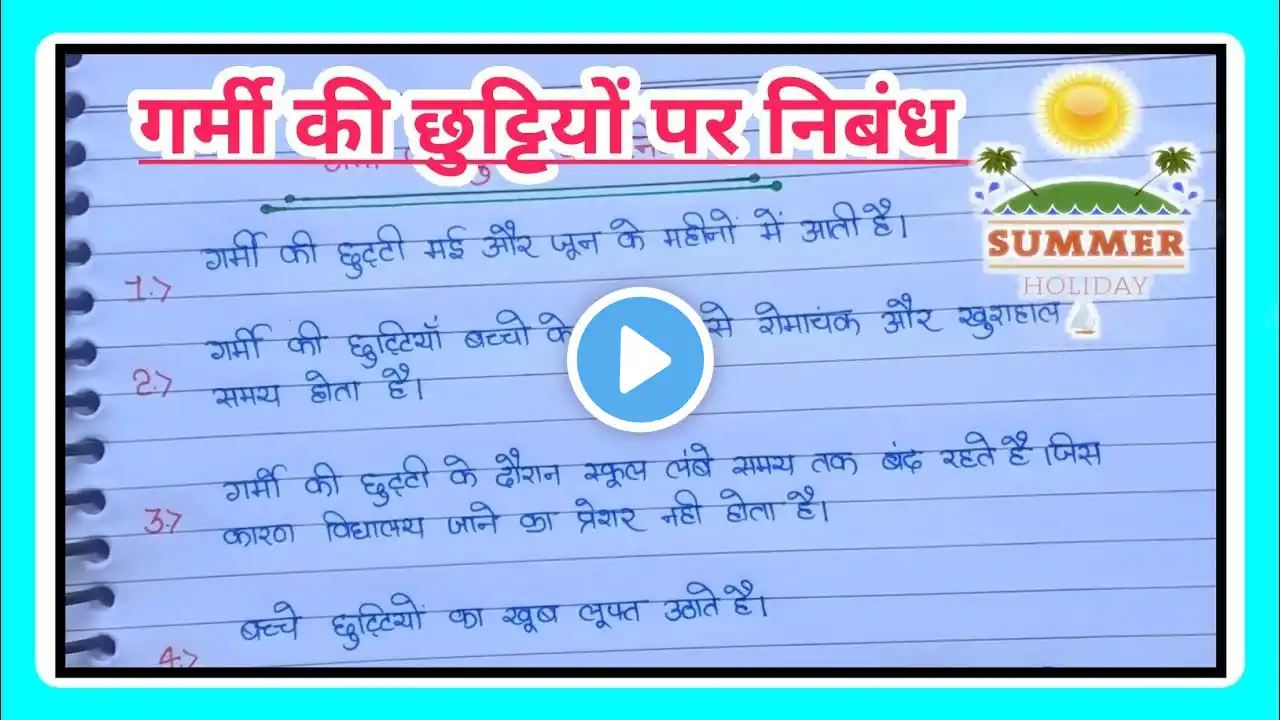 गर्मी की छुट्टियों पर निबंध
SUMMER
HOLIDAY
1.>
गर्मी की छुट्टी मई और जून के महीनों में आती है।
2.>
गर्मी की छुट्टियाँ बच्चो के से रोमाचंक और खुशहाल
समय होता है।
3.>
गर्मी की छुट्टी के दौरान स्कूल लंबे समय तक बंद रहते है जिस
कारण विद्यालय जाने का प्रेशर नही होता है।
4.>
बच्चे छुट्टियों का खूब लूफ्त उठाते है।